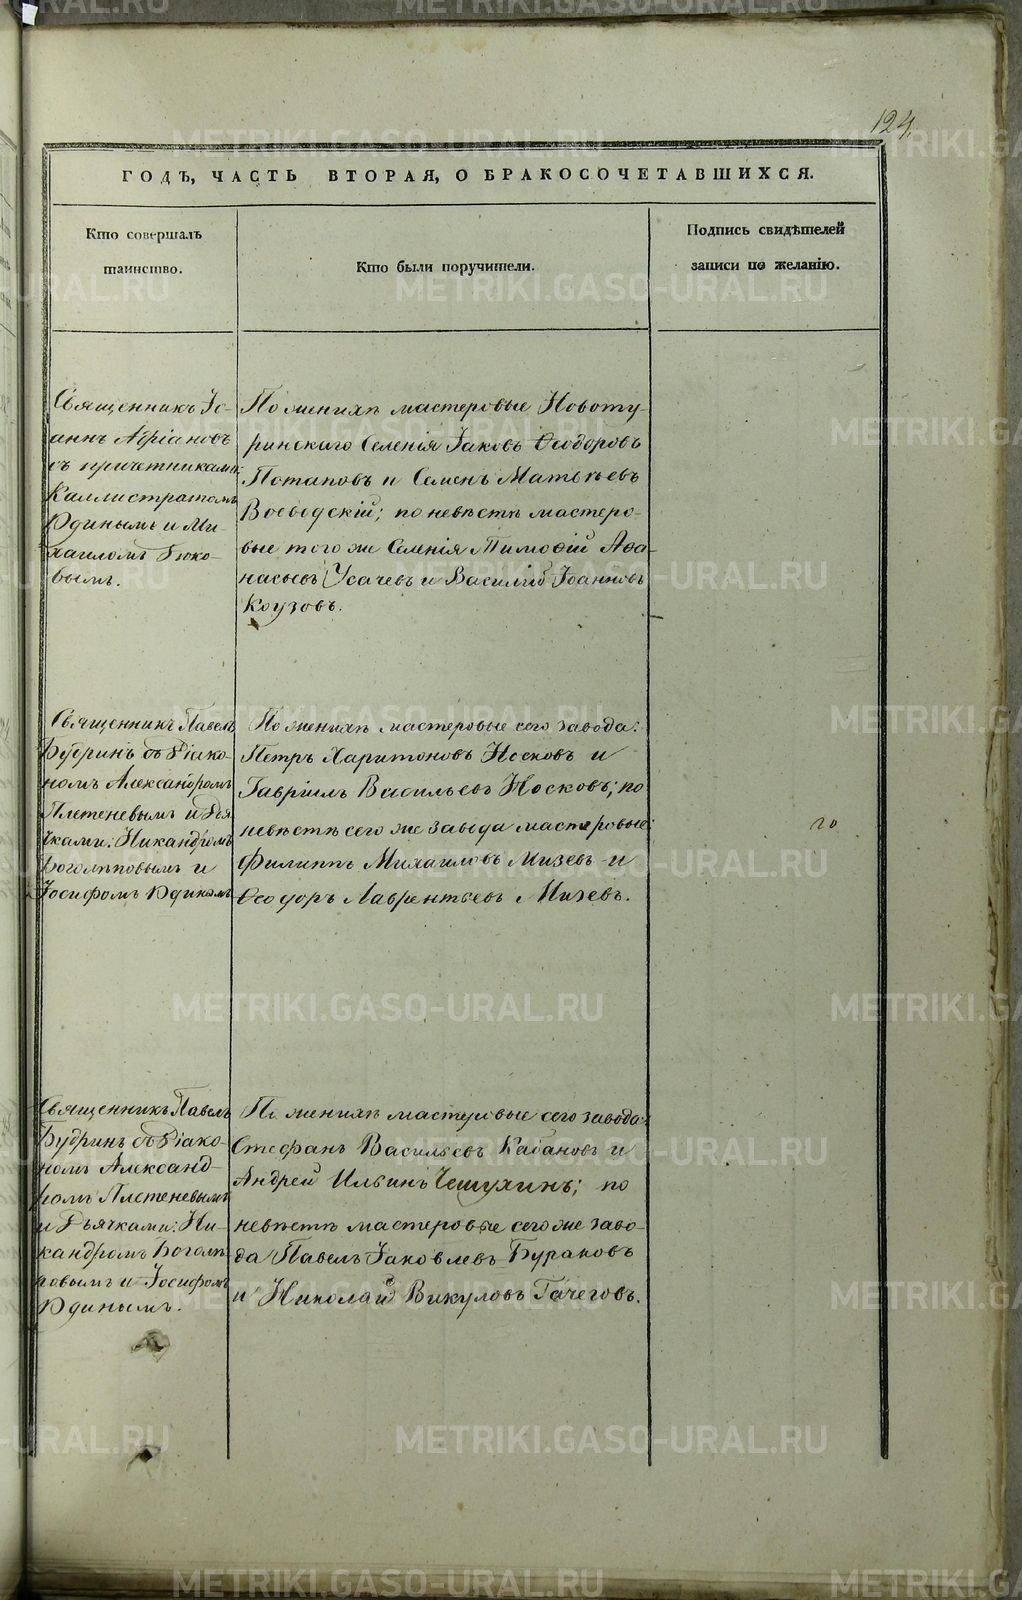 124.
ГОДЪ, ЧАСТЬ ВТОРАЯ, О БРАКОСОЧЕТАВШИХСЯ.
Кто совершалъ
таинство.
Кто были поручители.
Подпись свидѣтелей
записи по желанію.
Священникъ Іо-
аннъ Адріановъ
съ причетниками:
Каллистратомъ
Юдинымъ и Ми-
хаиломъ
вымъ.
По женихѣ мастеровые Новоту-
ринскаго Селенія Іаковъ Ѳеодоровъ
Потаповъ и Семенъ Матвѣевъ
Воеводскій; по невѣстѣ мастеро-
вые того же Селенія Тимоѳій Аѳа-
насьевъ Усачевъ и Василій Іоанновъ
Коузовъ.
Священникъ Павелъ
Будринъ съ діако-
номъ Александромъ
Плетеневымъ и дья-
чками: Никандромъ
Боголѣповымъ и
Іосифомъ Юдинымъ
По женихѣ мастеровые сего завода:
Петръ Харитоновъ Носковъ и
Гавріилъ Васильевъ Носковъ; по
невѣстѣ сего же завода мастеровые:
Филиппъ Михаиловъ Мизевъ и
Ѳеодоръ Лаврентьевъ Мизевъ.
Священникъ Павелъ
Будринъ съ діако-
номъ Александ-
ромъ Плетеневымъ
и дьячками: Ни-
кандромъ Боголѣ-
повымъ и Іосифомъ
Юдинымъ.
По женихѣ мастеровые сего завода:
Стефанъ Васильевъ Кабановъ и
Андрей Ильинъ Чешухинъ; по
невѣстѣ мастеровые сего же заво-
да Павелъ Іаковлевъ Бураковъ
и Николай Викуловъ Гачеговъ.
METRIKI.GASO-URAL.RU